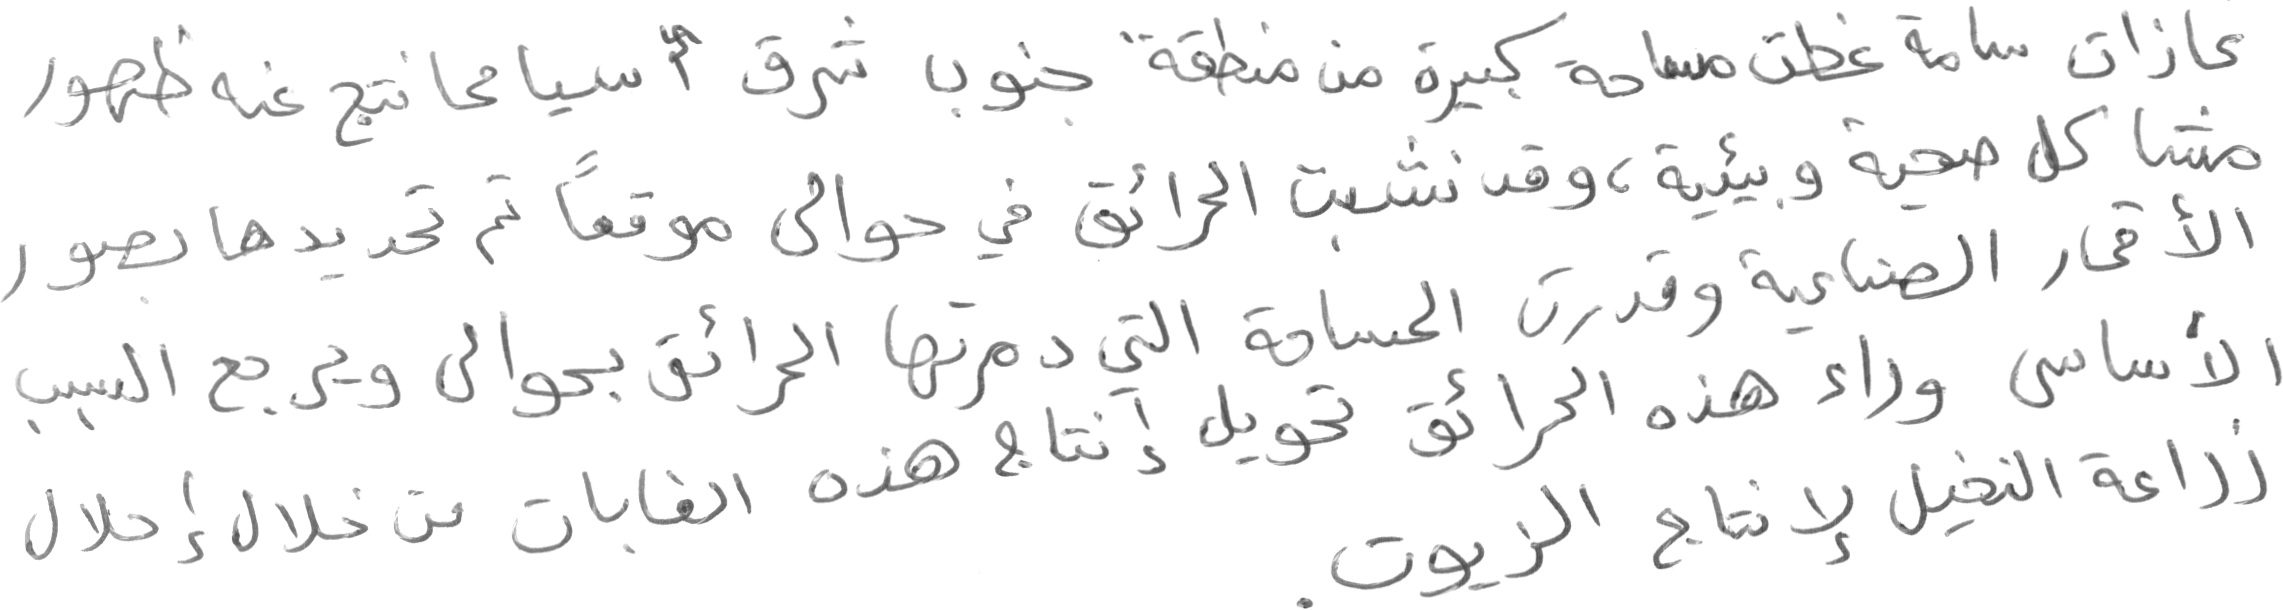 غازات سامة غطت مساحة كبيرة من منطقة جنوب شرق آسيا مما نتج عنه ظهور
مشاكل صحية وبيئية، وقد نشبت الحرائق في حوالى موقعاً تم تحديدها بصور
الأقمار الصناعية وقدرت المساحة التي دمرتها الحرائق بحوالى ويرجع السبب
الأساسى وراء هذه الحرائق تحويل إنتاج هذه الغابات من خلال إحلال
زراعة النخيل لإنتاج الزيوت.